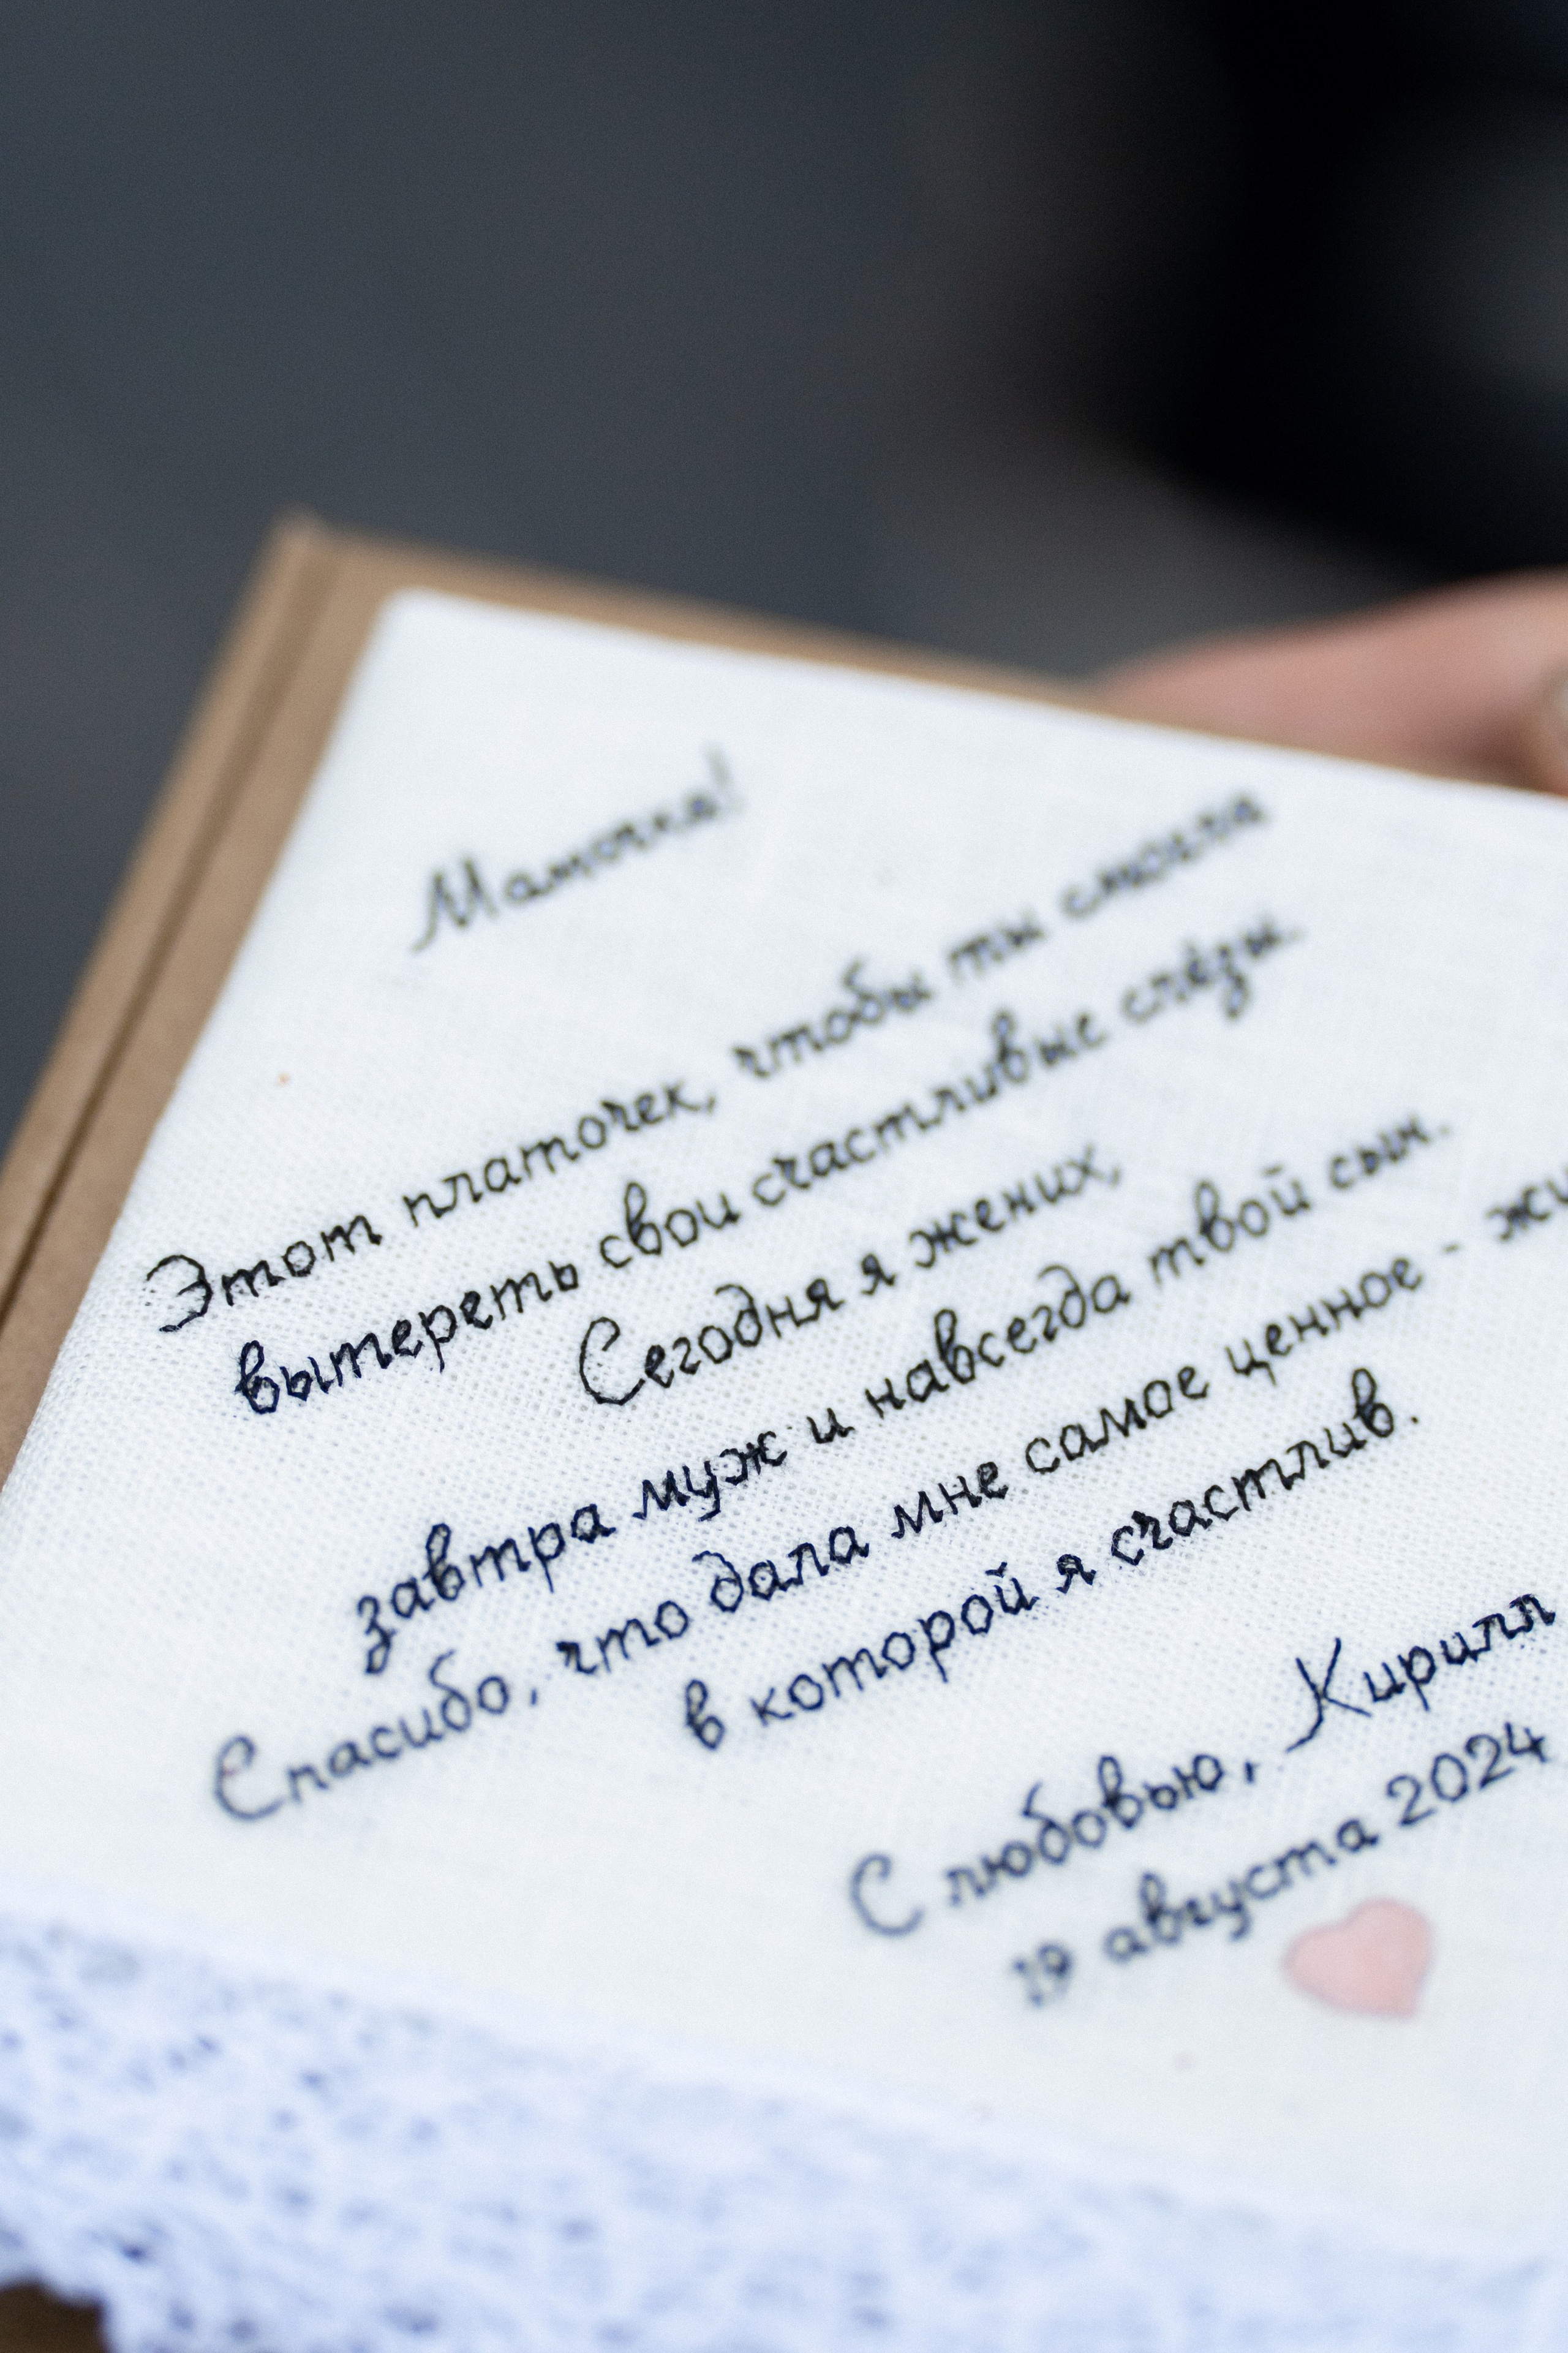 Маточка!
Этот платочек, чтобы ты смогла
вытереть свои счастливые слёзы.
Сегодня я жених,
завтра муж и навсегда твой сын.
Спасибо, что дала мне самое ценное -
в которой я счастлив.
С любовью, Кирилл
19 августа 2024